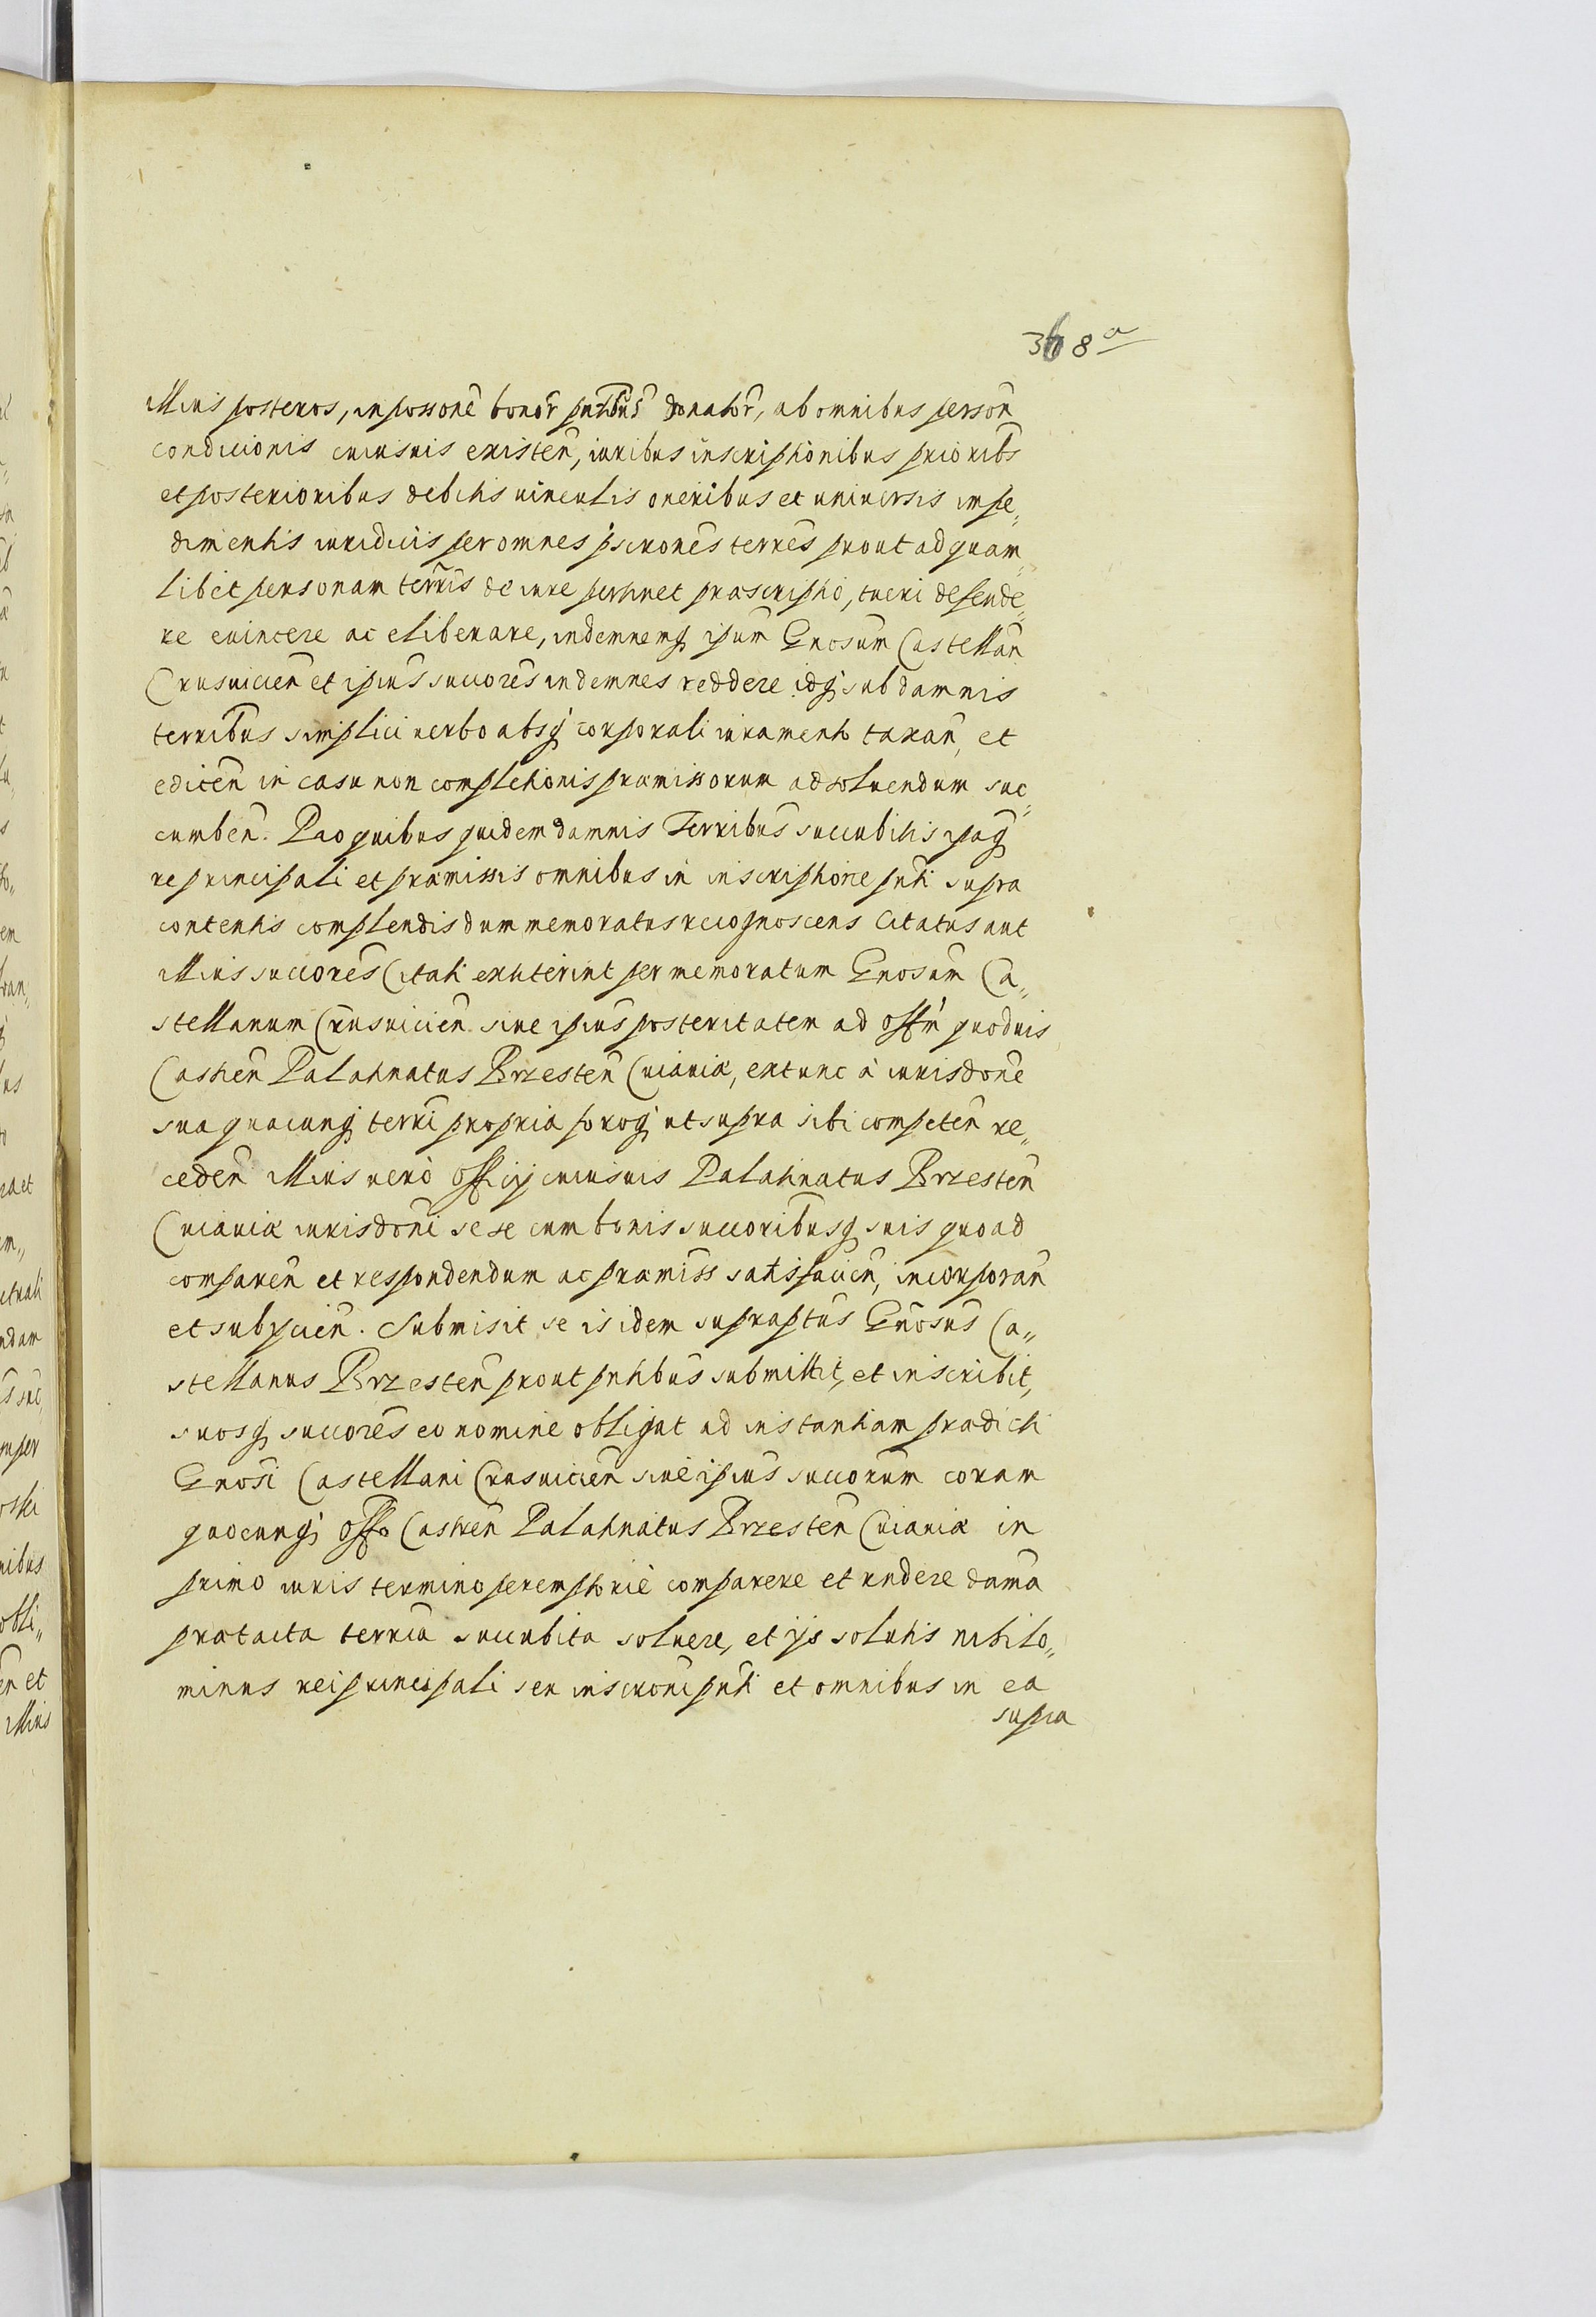 368 a
illius posteros, in possone bonor pntibus donator, ab omnibus person
condicionis cuiusuis existen, iuribus inscriptionibus prioribs
et posterioribus debitis uinculis oneribus et uniuersis impe„
dimentis iuridicis per omnes pscrones terres prout ad quam„
libet personam terris de iure pertinet praescriptio, tueri defende„
re euincere ac eliberare, indemnemq ipsum Gnosum Castellan
Crusuicien et ipius succores indemnes reddere idq sub damnis
terribus simplici uerbo absq corporali iuramento taxan, et
edicen in casu non completionis praemissorum ad soluendum suc„
cumben. Pro quibus quidem damnis Terribus succubitis ipaq
re principali et praemissis omnibus in inscriptione pnti supra
contentis complendis dum memoratus recognoscens Citatus aut
illius succores Citati extiterint per memoratum Gnosum Ca„
stellanum Crusuicien siue ipius posteritatem ad offm quoduis
Castren Palatinatus Brzesten Cuiauiæ, extunc à iurisdone
sua quacunq terri propria foroq ut supra sibi competen re„
ceden illius uerò officij cuiusuis Palatinatus Brzesten
Cuiauiæ iurisdoni sese cum bonis succoribusq suis quoad
comparen et respondendum ac praemiss satisfacien, incorporan
et subijcien. Submisit se is idem supraptus Gnosus Ca„
stellanus Brzesten prout pntibus submittit, et inscribit,
suosq succores eo nomine obligat ad instantiam praedicti
Gnosi Castellani Crusuicien siue ipius succorum coram
quocunq offo Castren Palatinatus Brzesten Cuiauiæ in
primo iuris termino peremptoriè comparere et rndere dama
praetacta terria succubita soluere, et ijs solutis nihilo„
minus rei principali seu inscroni pnti et omnibus in ea
supra